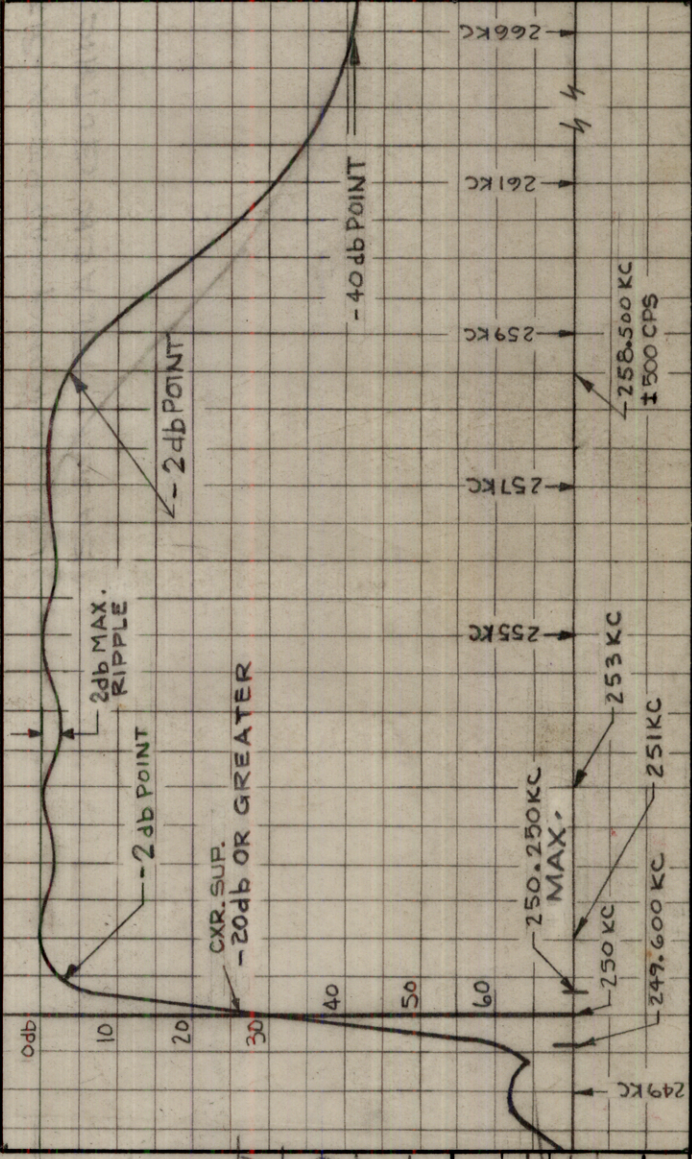 0db
10
20
30
40
50
60
-2db POINT
2db MAX.
RIPPLE
-2db POINT
-40db POINT
CXR. SUP.
-20db OR GREATER
249KC
249.600 KC
250 KC
250.250KC
MAX.
251KC
253 KC
255KC
257KC
258.500 KC
±500 CPS
259KC
261KC
266KC